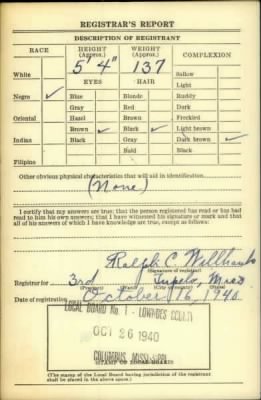 REGISTRAR'S REPORT
DESCRIPTION OF REGISTRANT
RACE
HEIGHT
(Approx.)
WEIGHT
(Approx.)
COMPLEXION
White
5' 4"
137
Sallow
EYES
HAIR
Light
Negro ✓
Blue
Blonde
Ruddy
Gray
Red
Dark
Oriental
Hazel
Brown
Freckled
Brown ✓
Black ✓
Light brown
Indian
Black
Gray
Dark brown ✓
Bald
Black
Filipino
Other obvious physical characteristics that will aid in identification
(None)
I certify that my answers are true; that the person registered has read or has had
read to him his own answers; that I have witnessed his signature or mark and that
all of his answers of which I have knowledge are true, except as follows:
Ralph C.
(Signature of registrar)
Registrar for 3rd Tupelo, Miss
(Precinct) (City or County) (State)
Date of registration October 16, 1940
LOCAL BOARD No. 1 - LOWNDES COUNTY
OCT 26 1940
COLUMBUS, MISSISSIPPI
(STAMP OF LOCAL BOARD)
(The stamp of the Local Board having jurisdiction of the registrant
shall be placed in the above space.)